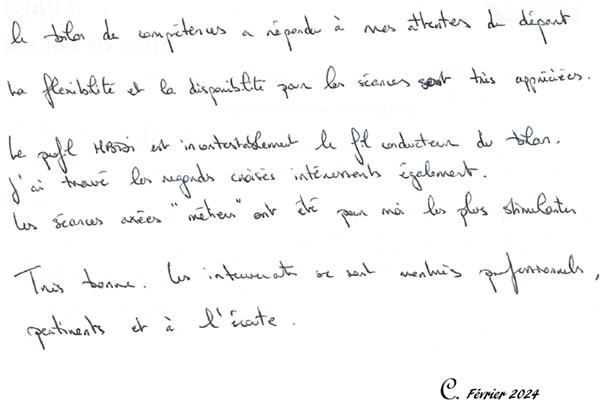 Le bilan de compétences a répondu à mes attentes du départ
La flexibilité et la disponibilité pour les séances sont très appréciées.
Le profil HBDI est incontestablement le fil conducteur du bilan.
J'ai trouvé les regards croisés intéressants également.
Les séances axées "métiers" ont été pour moi les plus stimulantes
Très bonne. Les intervenants se sont montrés professionnels,
pertinents et à l'écoute.
C. Février 2024